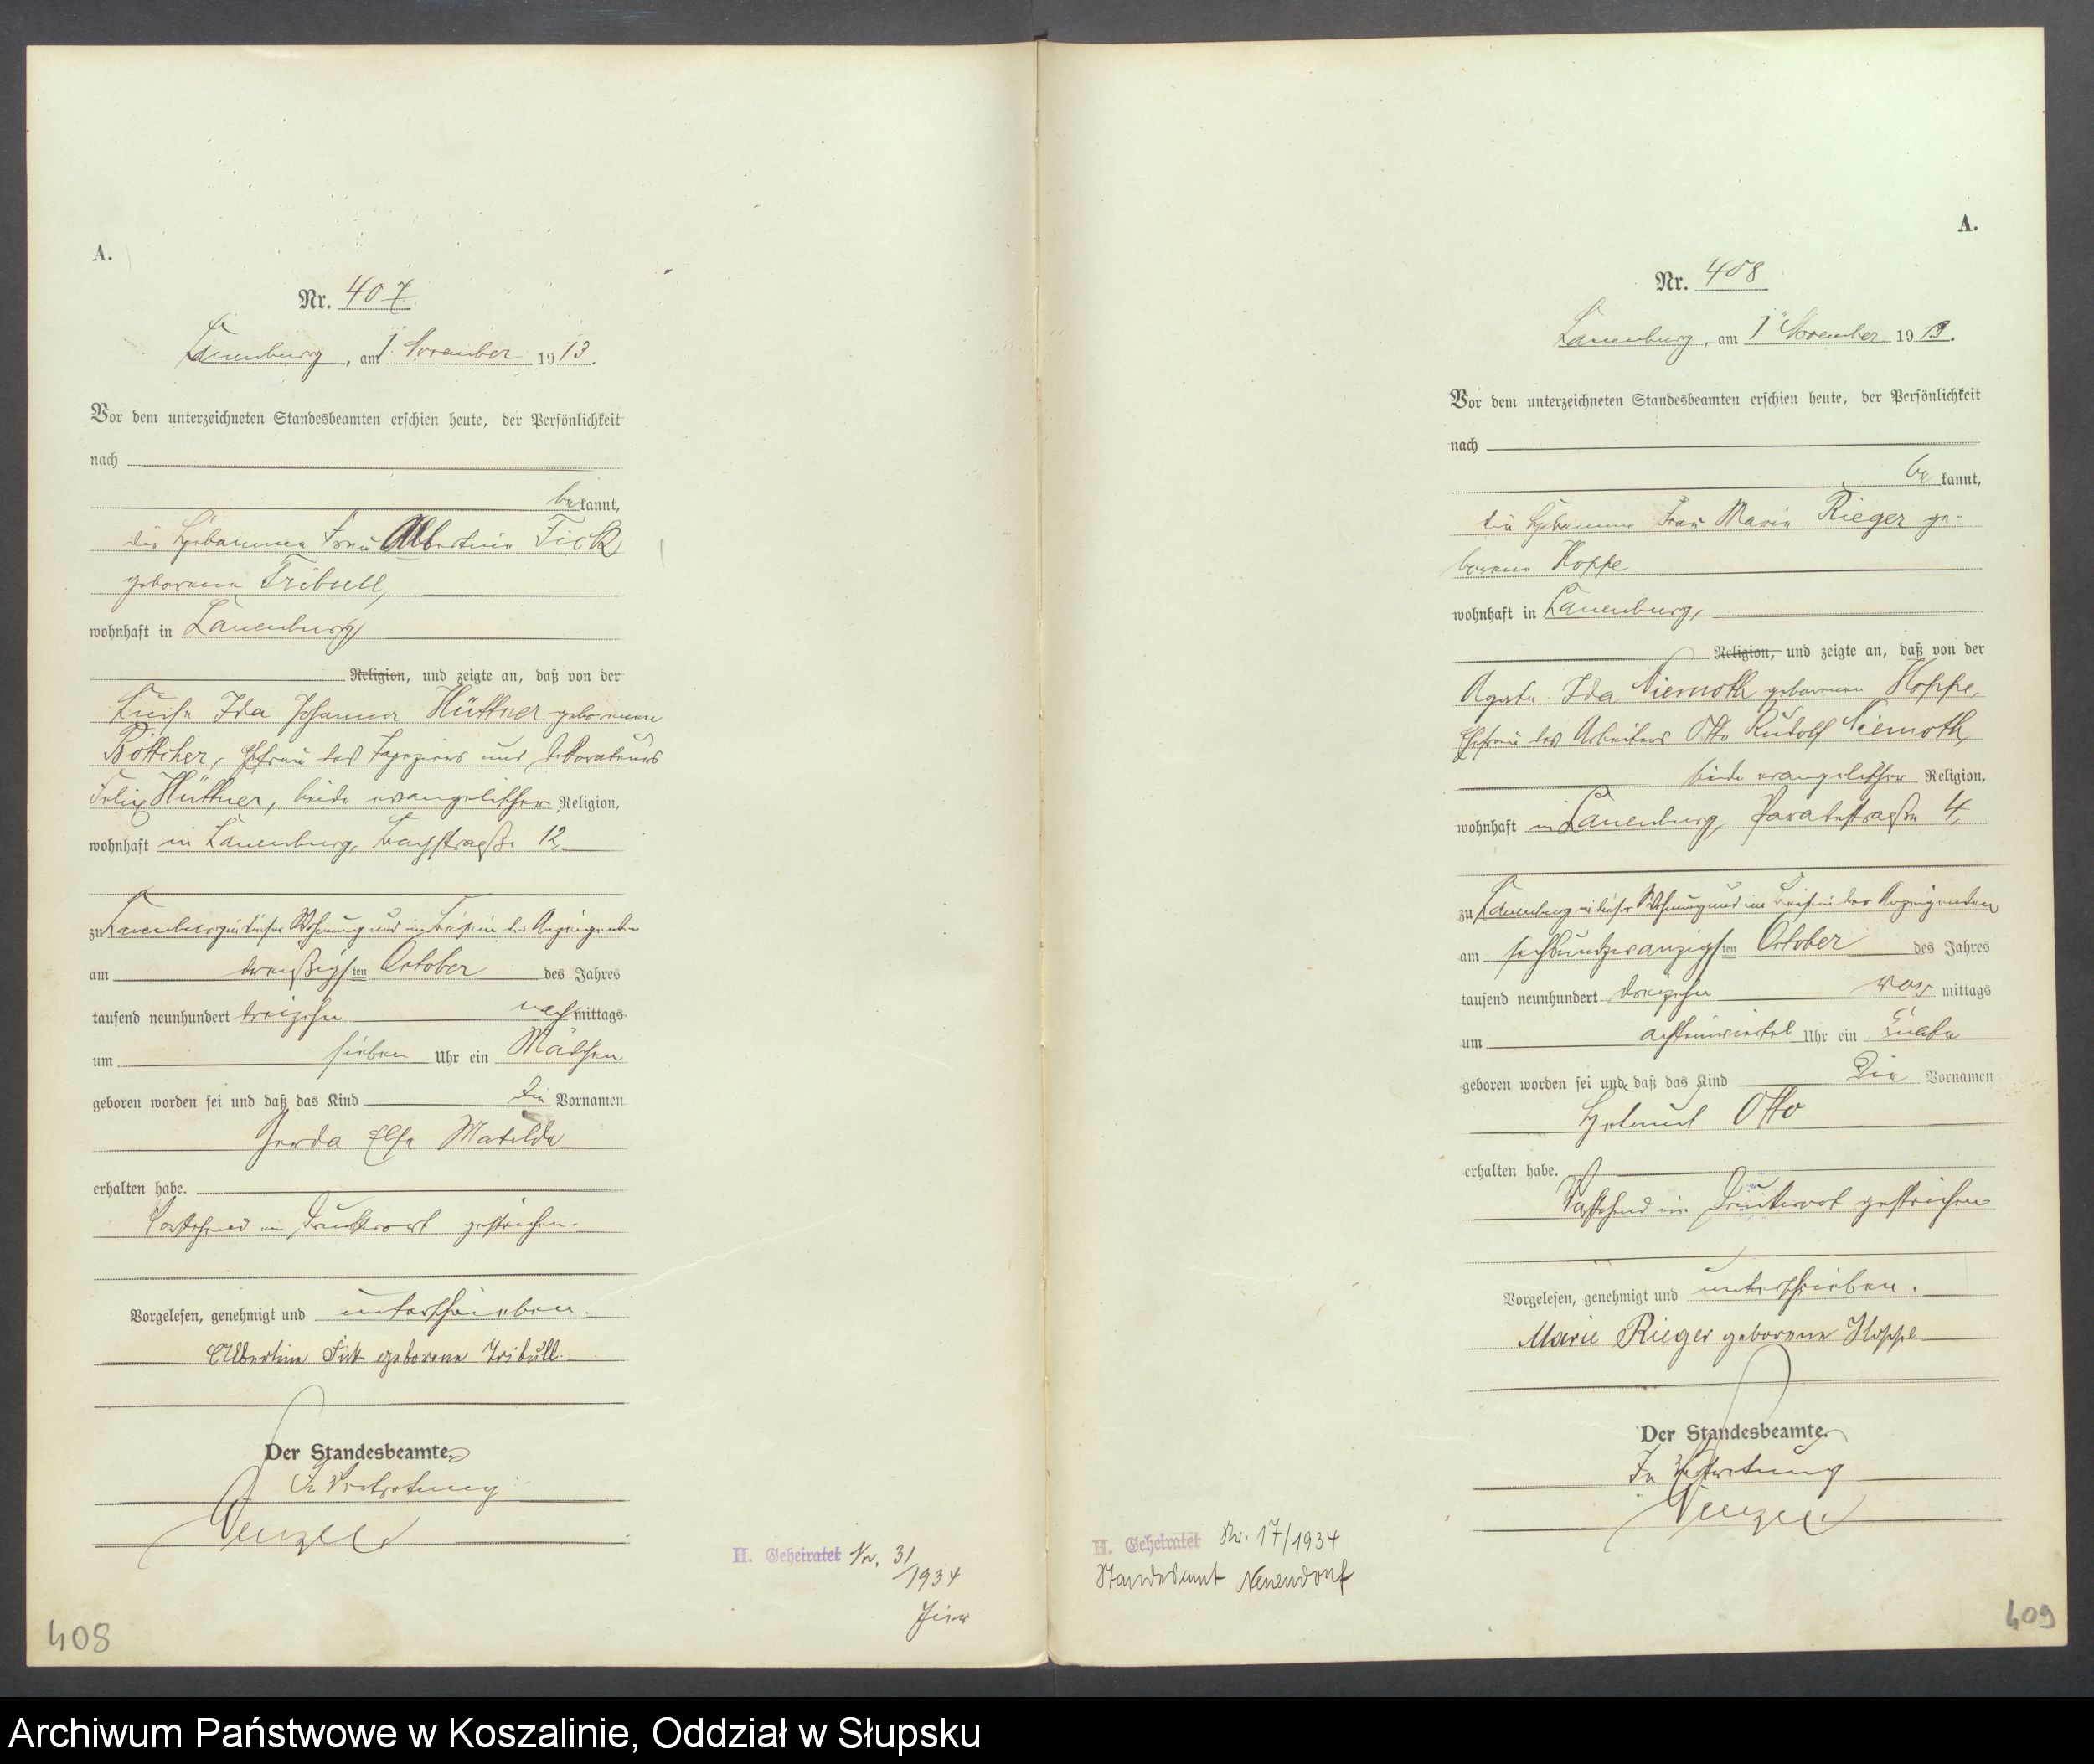 A.
Nr. 407
Lauenburg, am 1. November 1913.
Vor dem unterzeichneten Standesbeamten erschien heute, der Persönlichkeit
nach
be kannt,
die Hebamme Frau Albertine Fick
geborene Tribull,
wohnhaft in Lauenburg,
Religion, und zeigte an, daß von der
Luise Ida Johanna Hüttner geborenen
Böttcher, Ehefrau des Tapeziers und Dekorateurs
Felix Hüttner, beide evangelischer Religion,
wohnhaft in Lauenburg, 12,
zu Lauenburg in dieser Wohnung und im Beisein der Anzeigenden
am dreißigsten October des Jahres
tausend neunhundert dreizehn nach mittags
um sieben Uhr ein Mädchen
geboren worden sei und daß das Kind die Vornamen
Gerda Else Matilde
erhalten habe.
Vorstehend ein Druckwort gestrichen.
Vorgelesen, genehmigt und unterschrieben.
Albertine Fick geborene Tribull.
Der Standesbeamte.
In Vertretung
Wenzel
H. Geheiratet Nr. 31/1934
hier
408
A.
Nr. 408
Lauenburg, am 1. November 1913.
Vor dem unterzeichneten Standesbeamten erschien heute, der Persönlichkeit
nach
be kannt,
die Hebamme Frau Marie Rieger ge-
borene Hoppe
wohnhaft in Lauenburg,
Religion, und zeigte an, daß von der
Agate Ida Niemoth geborenen Hoppe,
Ehefrau des Arbeiters Otto Rudolf Niemoth,
beide evangelischer Religion,
wohnhaft in Lauenburg, Paradestraße 4,
zu Lauenburg in dieser Wohnung und im Beisein der Anzeigenden
am sechsundzwanzigsten October des Jahres
tausend neunhundert dreizehn vor mittags
um achteinviertel Uhr ein Knabe
geboren worden sei und daß das Kind die Vornamen
Helmut Otto
erhalten habe.
Vorstehend ein Druckwort gestrichen
Vorgelesen, genehmigt und unterschrieben.
Marie Rieger geborene Hoppe
Der Standesbeamte.
In Vertretung
Wenzel
H. Geheiratet Nr. 17/1934
Standesamt Neuendorf
409
Archiwum Państwowe w Koszalinie, Oddział w Słupsku